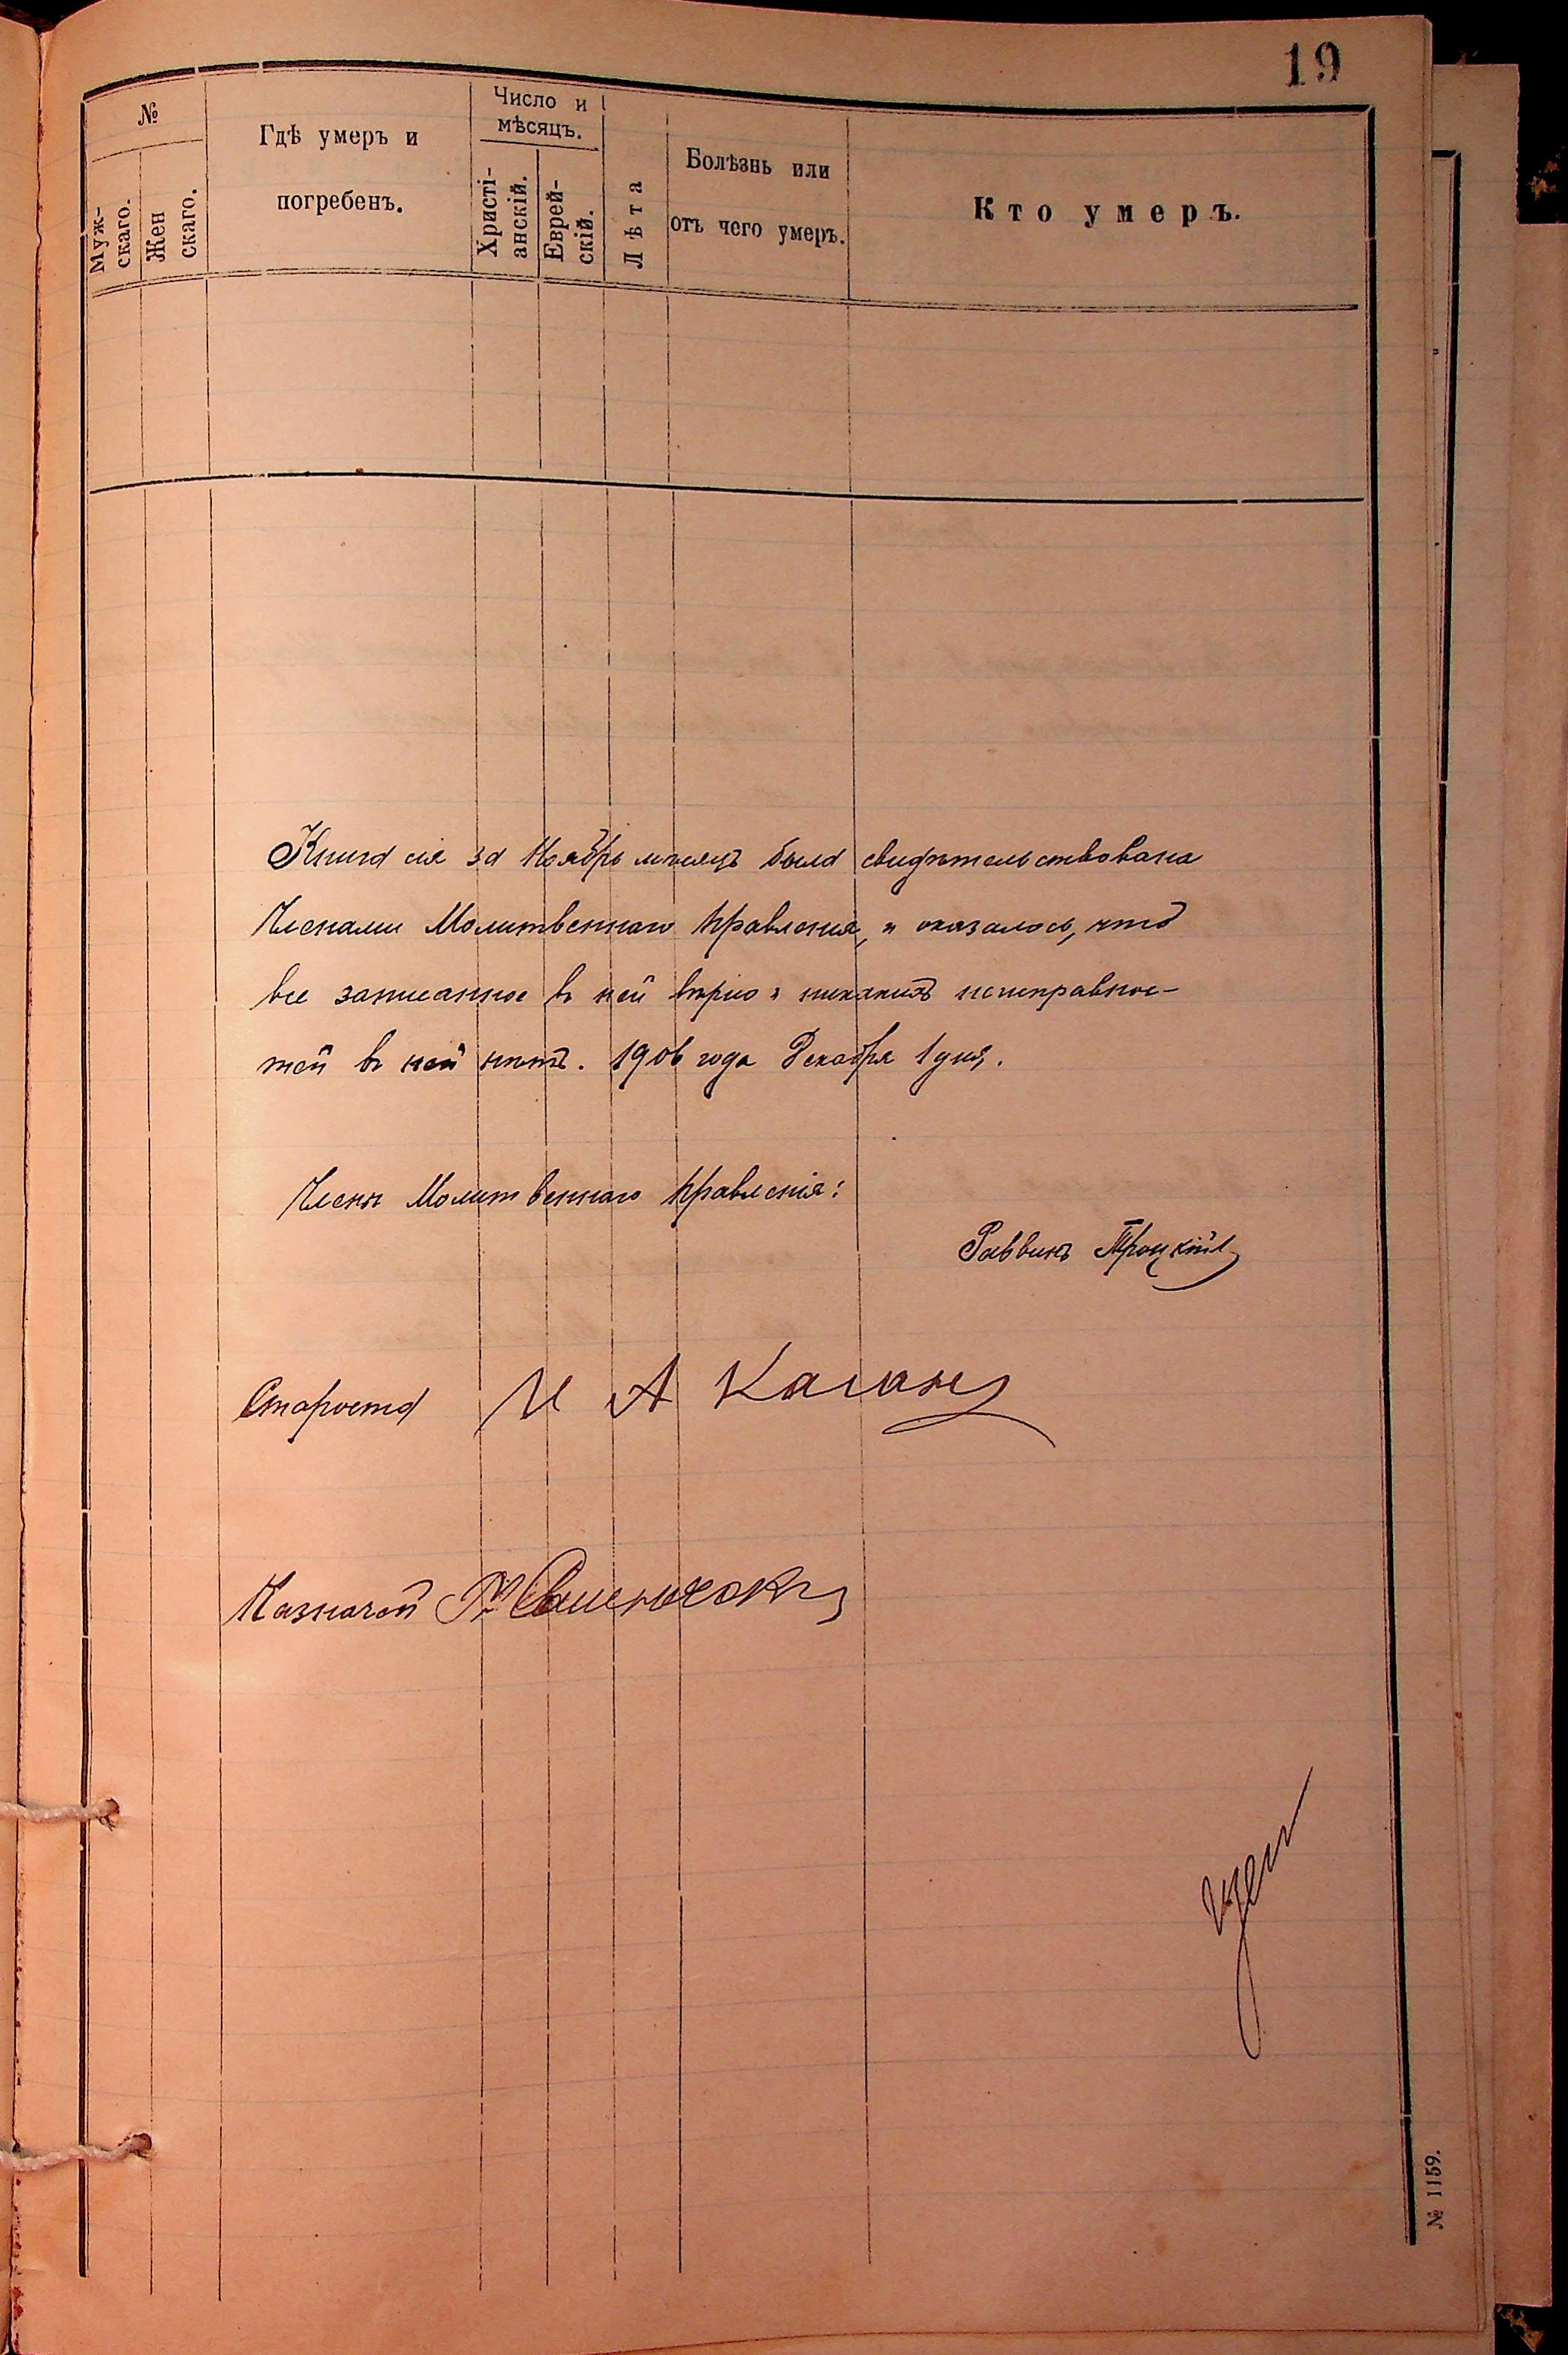 19
№
Муж-
скаго.
Жен
скаго.
Гдѣ умеръ и
погребенъ.
Число и
мѣсяцъ.
Христі-
анскій.
Еврей-
скій.
Лѣта
Болѣзнь или
отъ чего умеръ.
Кто умеръ.
Книга сія за Ноябрь мѣсяцъ была свидѣтельствована
Членами Молитвеннаго Правленія, и оказалось, что
все записанное въ ней вѣрно и никакихъ неисправнос-
тей въ ней нѣтъ. 1906 года Декабря 1 дня.
Члены Молитвеннаго Правленія:
Раввинъ Троцкій
Староста И А Каганъ
Казначей
№ 1159.